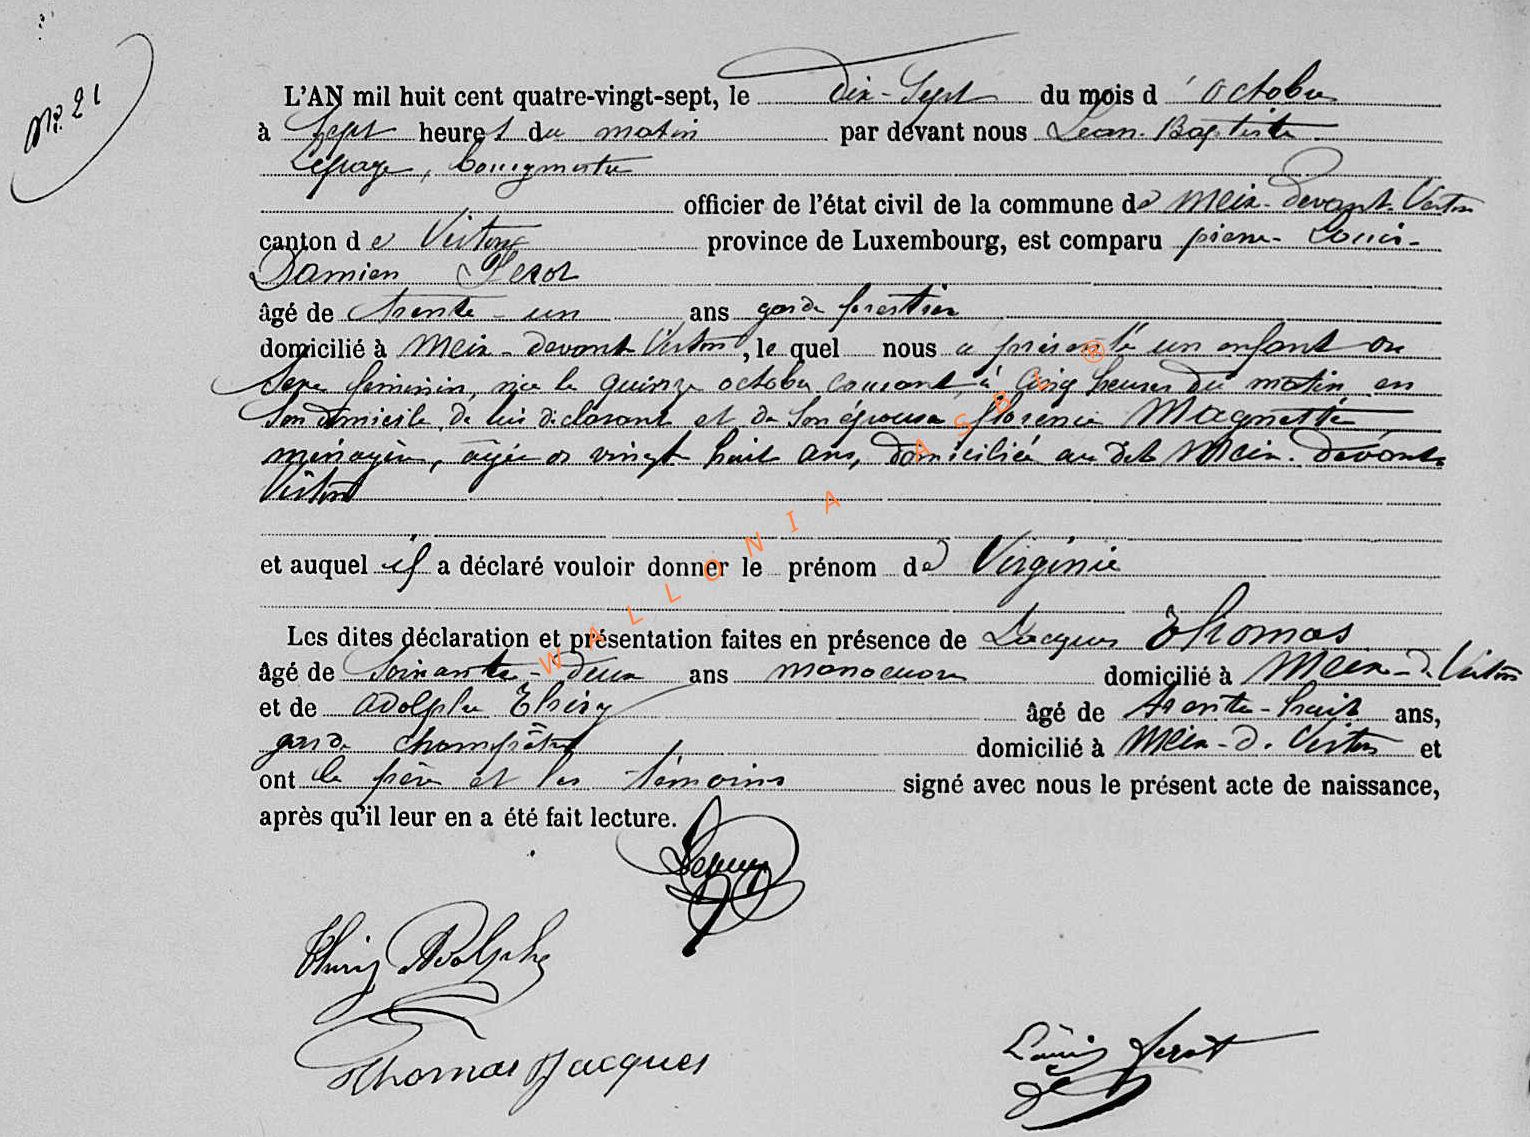 N°. 21
L'AN mil huit cent quatre-vingt-sept, le Dix-Sept du mois d'octobre
à Sept heures du matin par devant nous Jean-Baptiste
Lepage, bourgmestre
officier de l'état civil de la commune de Meix-devant-Virton
canton de Virton province de Luxembourg, est comparu pierre-Louis-
Damien Perot
âgé de trente-un ans garde forestier
domicilié à Meix-devant Virton, le quel nous a présenté un enfant du
Sexe féminin, née le quinze octobre courant à cinq heures du matin en
Son domicile de lui déclarant et de Son épouse florence Magnette
ménagère, âgée de vingt huit ans, domiciliée au dit Meix-devant-
Virton
et auquel il a déclaré vouloir donner le prénom de Virginie
Les dites déclaration et présentation faites en présence de Jacques Thomas
âgé de Soixante-deux ans manoeuvre domicilié à Meix-d-Virton
et de Adolphe Thiry âgé de trente-huit ans,
garde champêtre domicilié à Meix-d-Virton et
ont le père et les témoins signé avec nous le présent acte de naissance,
après qu'il leur en a été fait lecture.
Lepage
Thiry Adolphe
Thomas Jacques
Louis Perot
WALLONIA ASBL ®